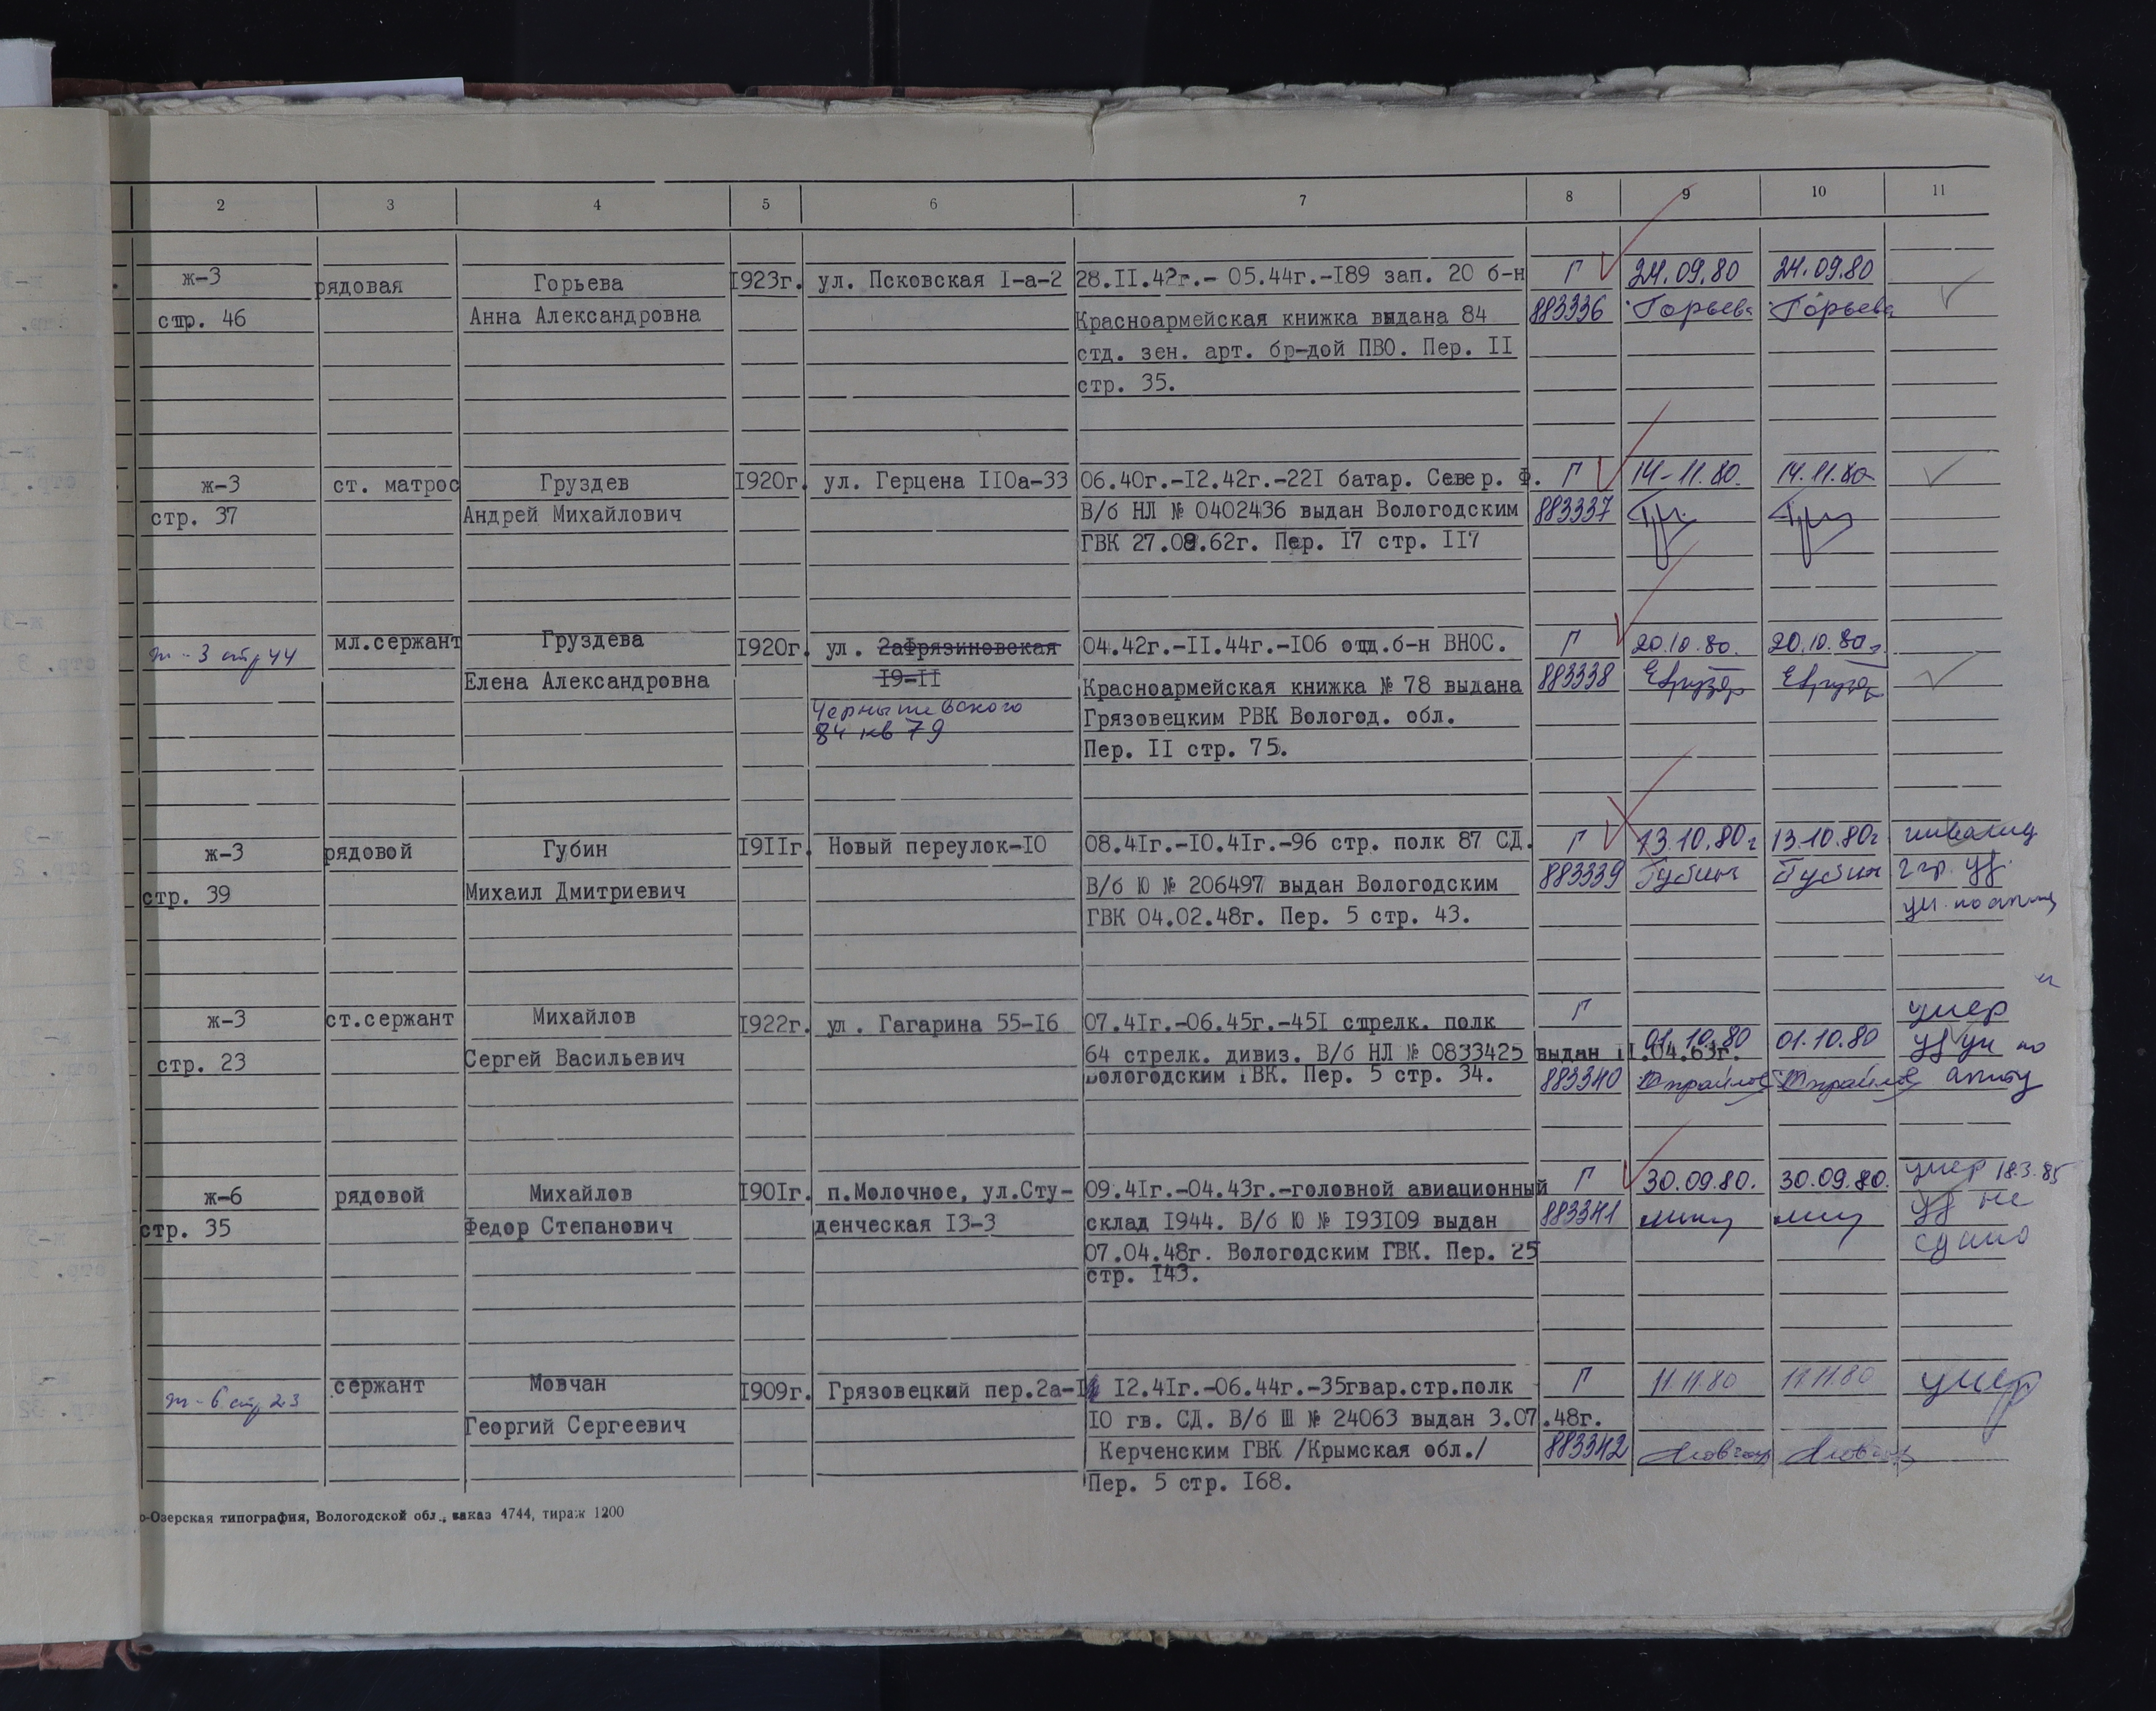 2 3 4 5 6 7 8 9 10 11
ж-3 рядовая Горьева 1923г. ул. Псковская 1-а-2 28.11.42г.- 05.44г.-189 зап. 20 б-н Г 24.09.80 24.09.80
стр. 46 Анна Александровна Красноармейская книжка выдана 84 883336 Горьева Горьева
отд. зен. арт. бр-дой ПВО. Пер. II
стр. 35.
ж-3 ст. матрос Груздев 1920г. ул. Герцена 110а-33 06.40г.-12.42г.-221 батар. Север. Ф. Г 14-11.80. 14.11.80
стр. 37 Андрей Михайлович В/б НЛ № 0402436 выдан Вологодским 883337
ГВК 27.08.62г. Пер. 17 стр. 117
ж-3 стр 44 мл.сержант Груздева 1920г. ул. 2аФрязиновская 04.42г.-11.44г.-106 отд.б-н ВНОС. Г 20.10.80. 20.10.80г.
Елена Александровна 19-11 Красноармейская книжка № 78 выдана 883338
Чернышевского Грязовецким РВК Вологод. обл.
84 кв 79 Пер. II стр. 75.
ж-3 рядовой Губин 1911г. Новый переулок-10 08.41г.-10.41г.-96 стр. полк 87 СД. Г 13.10.80г 13.10.80г инвалид
стр. 39 Михаил Дмитриевич В/б Ю № 206497 выдан Вологодским 883339 Губин Губин 2 гр. уд.
ГВК 04.02.48г. Пер. 5 стр. 43.
ж-3 ст.сержант Михайлов 1922г. ул. Гагарина 55-16 07.41г.-06.45г.-451 стрелк. полк Г умер
стр. 23 Сергей Васильевич 64 стрелк. дивиз. В/б НЛ № 0833425 выдан 11.04.63г. 01.10.80 01.10.80
Вологодским ГВК. Пер. 5 стр. 34. 883340
ж-6 рядовой Михайлов 1901г. п.Молочное, ул.Сту- 09.41г.-04.43г.-головной авиационный Г 30.09.80. 30.09.80. умер 18.3.85
стр. 35 Федор Степанович денческая 13-3 склад 1944. В/б Ю № 193109 выдан 883341 уд не
07.04.48г. Вологодским ГВК. Пер. 25 сдано
стр. 143.
ж-6 стр 23 сержант Мовчан 1909г. Грязовецкий пер.2а- 12.41г.-06.44г.-35гвар.стр.полк Г 11.11.80 11.11.80 умер
Георгий Сергеевич 10 гв. СД. В/б Ш № 24063 выдан 3.07.48г.
Керченским ГВК /Крымская обл./ 883342 Мовчан Мовчан
Пер. 5 стр. 168.
о-Озерская типография, Вологодской обл., заказ 4744, тираж 1200